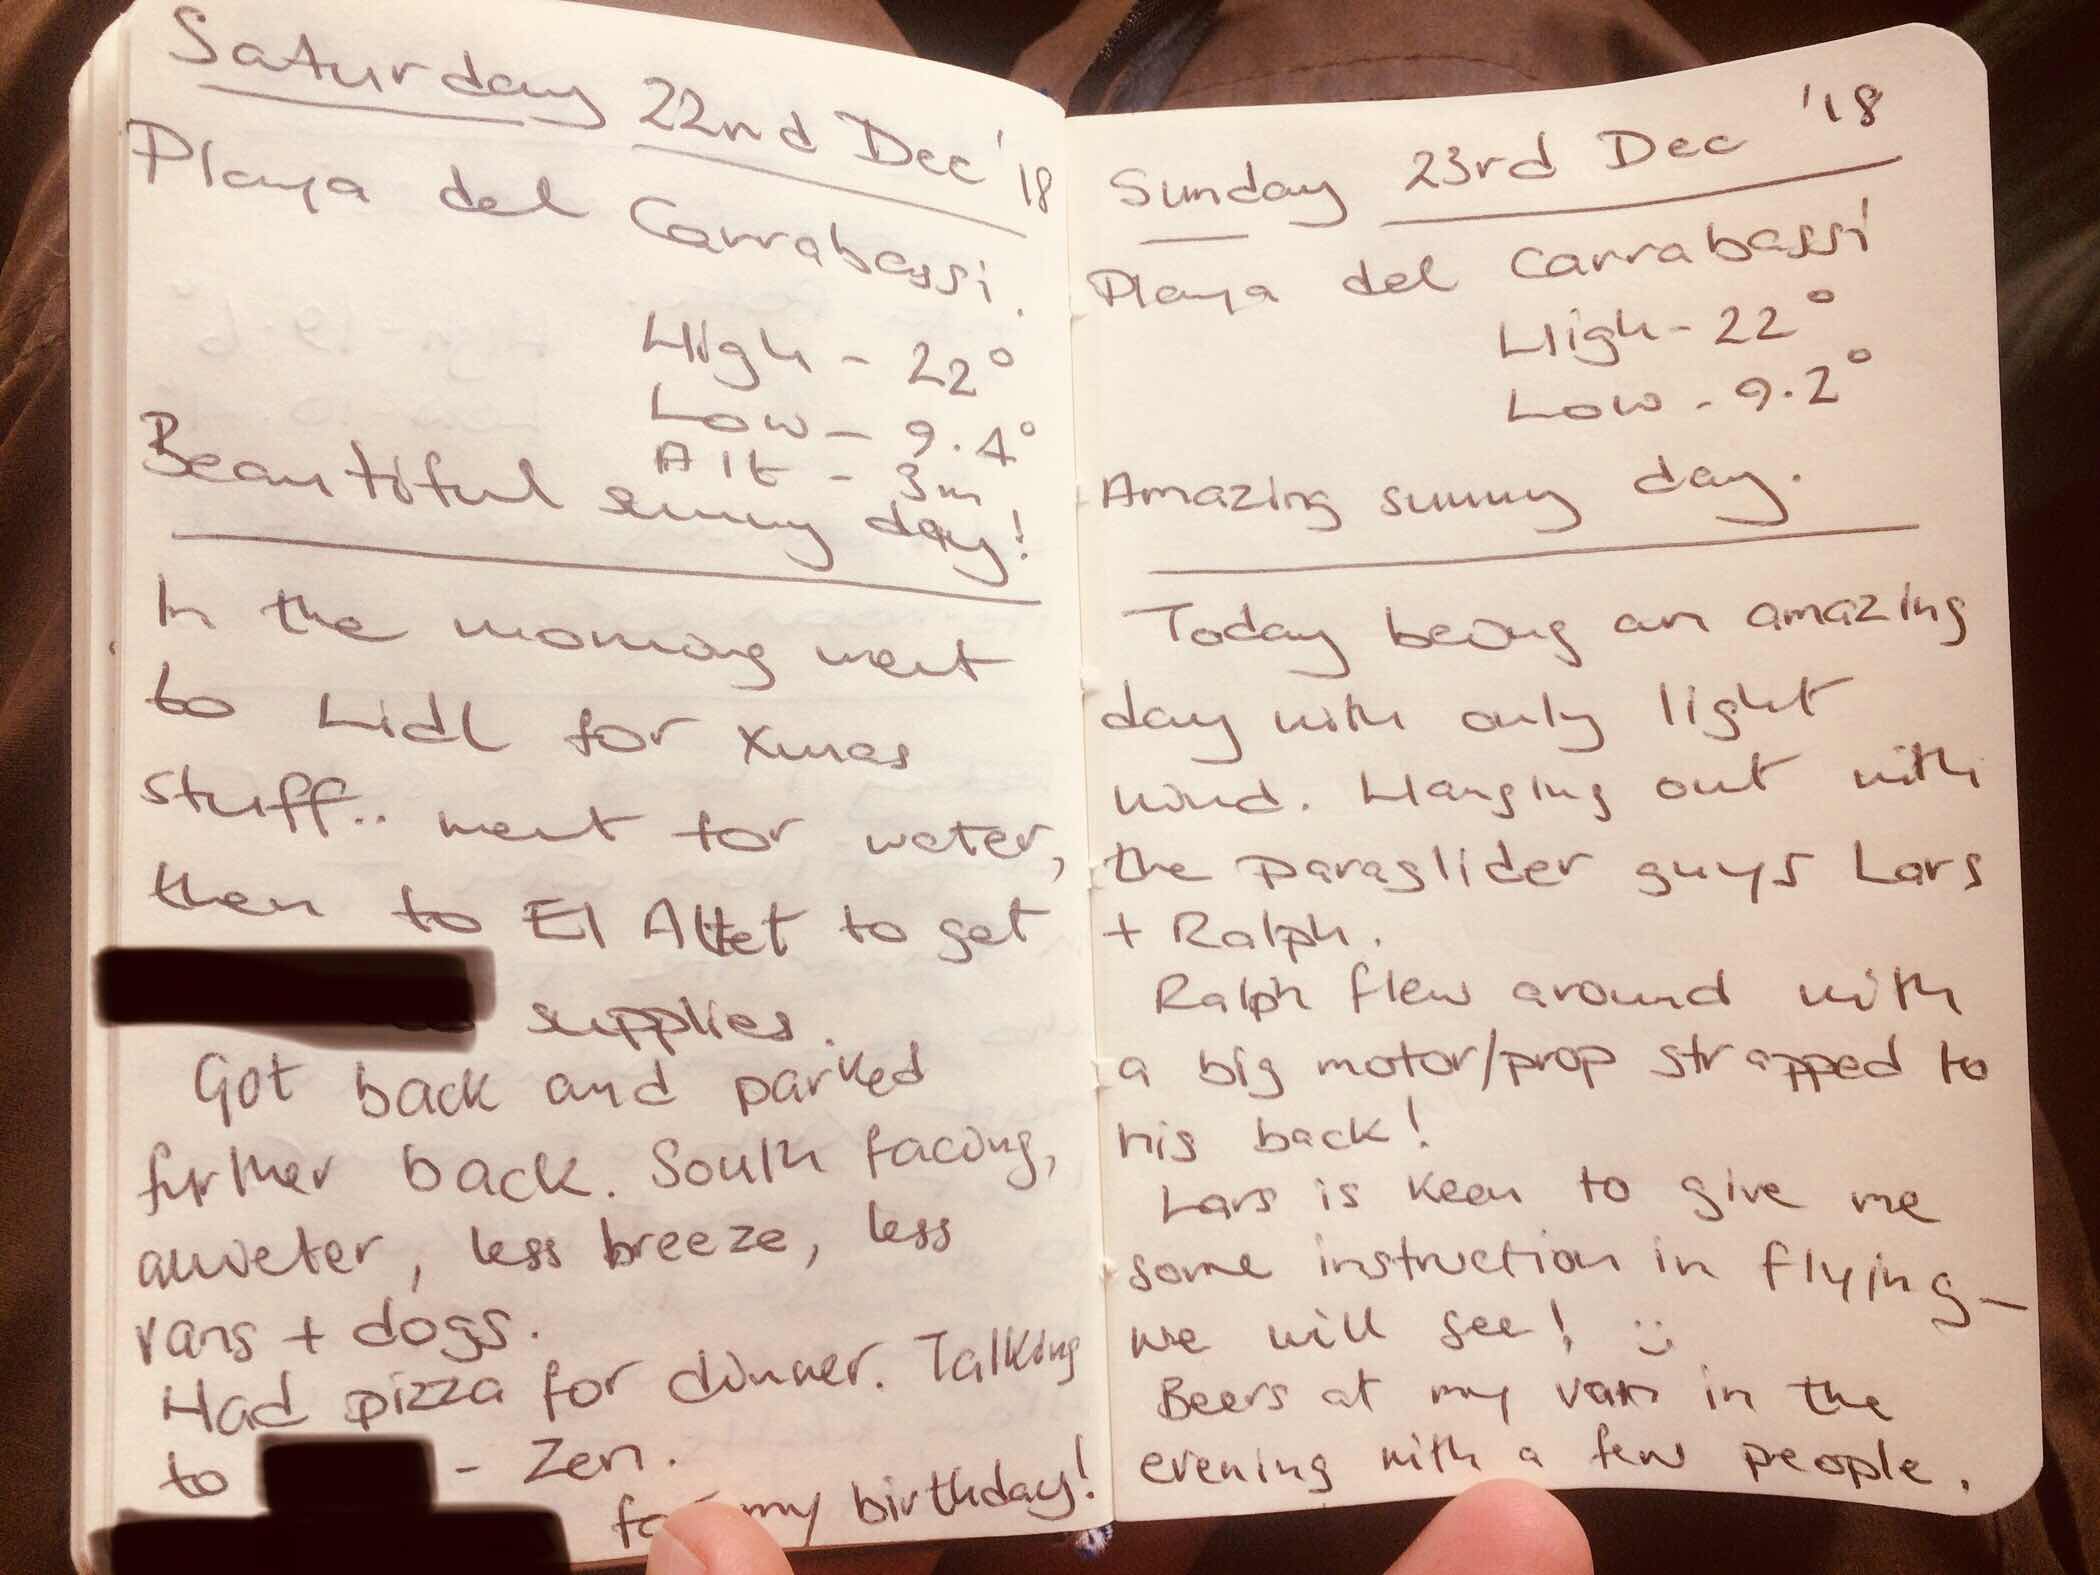 Saturday 22nd Dec '18
Playa del Carrabassi.
High - 22°
Low - 9.4°
Alt - 3m
Beautiful sunny day!
In the morning went
to Lidl for xmas
stuff.. went for water,
then to El Altet to get
supplies.
Got back and parked
further back. South facing,
quieter, less breeze, less
vans + dogs.
Had pizza for dinner. Talking
to - Zen.
for my birthday!
Sunday 23rd Dec '18
Playa del Carrabassi
High - 22°
Low - 9.2°
Amazing sunny day.
Today being an amazing
day with only light
wind. Hanging out with
the paraglider guys Lars
+ Ralph.
Ralph flew around with
a big motor/prop strapped to
his back!
Lars is keen to give me
some instruction in flying -
we will see! :)
Beers at my van in the
evening with a few people.